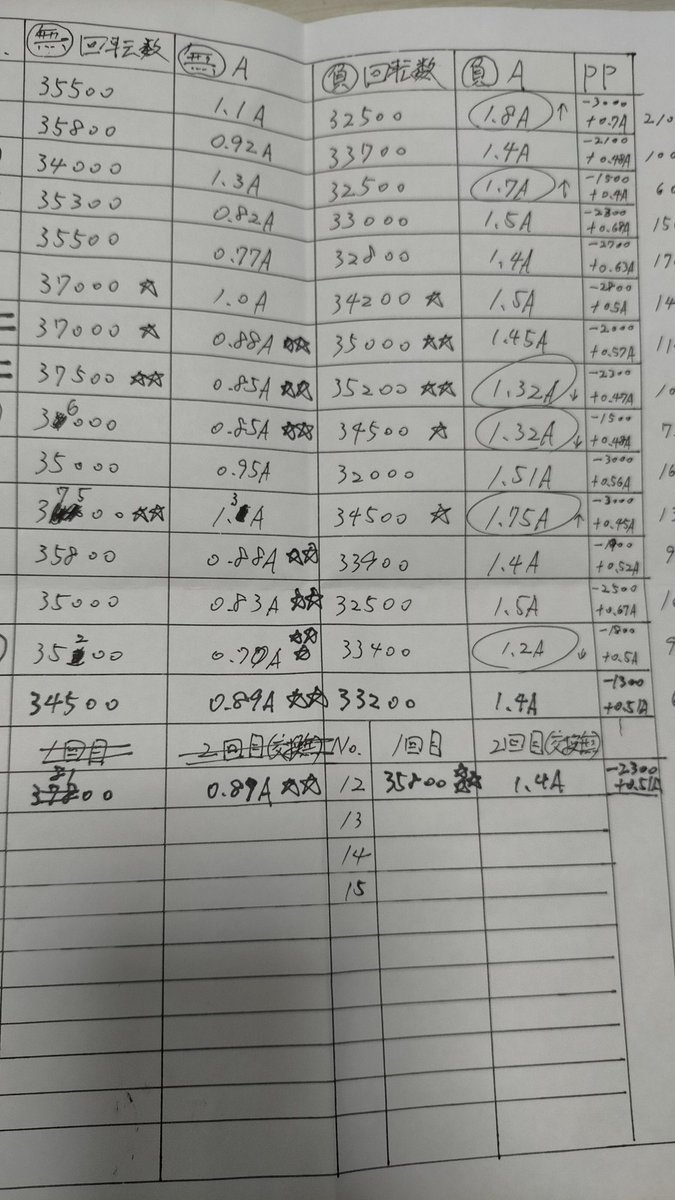 無 回転数 無 A 負 回転数 負 A PP
35500 1.1A 32500 1.8A↑ -3000 +0.7A
35800 0.92A 33700 1.4A -2100 +0.48A
34000 1.3A 32500 1.7A↑ -1500 +0.4A
35300 0.82A 33000 1.5A -2300 +0.68A
35500 0.77A 32800 1.4A -2700 +0.63A
37000☆ 1.0A 34200☆ 1.5A -2800 +0.5A
37000☆ 0.88A☆☆ 35000☆☆ 1.45A -2000 +0.57A
37500☆☆ 0.85A☆☆ 35200☆☆ 1.32A↓ -2300 +0.47A
36000 0.85A☆☆ 34500☆ 1.32A↓ -1500 +0.48A
35000 0.95A 32000 1.51A -3000 +0.56A
37500☆☆ 1.3A 34500☆ 1.75A↑ -3000 +0.45A
35800 0.88A☆☆ 33900 1.4A -1900 +0.52A
35000 0.83A☆☆ 32500 1.5A -2500 +0.67A
35200 0.70A☆☆☆ 33400 1.2A↓ -1800 +0.5A
34500 0.89A☆☆ 33200 1.4A -1300 +0.51A
1回目 2回目(交換無) No. 1回目 2回目(交換無)
0.89A☆☆ 12 35800☆☆☆ 1.4A -2300 +0.51A
13
14
15